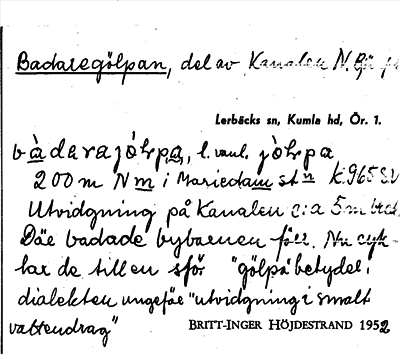 Badaregölpan, del av Kanalen N.
Lerbäcks sn, Kumla hd, Ör. 1.
bàdarajóḷpa, l. vanl. jòḷpa
200 m N m i Mariedam stn K.965
Utvidgning på Kanalen c:a 5 m bred.
Där badade bybarnen förr. Nu cyk-
lar de till en sjö. "gölpa" betyder i
dialekten ungefär "utvidgning i smalt
vattendrag"
BRITT-INGER HÖJDESTRAND 1952